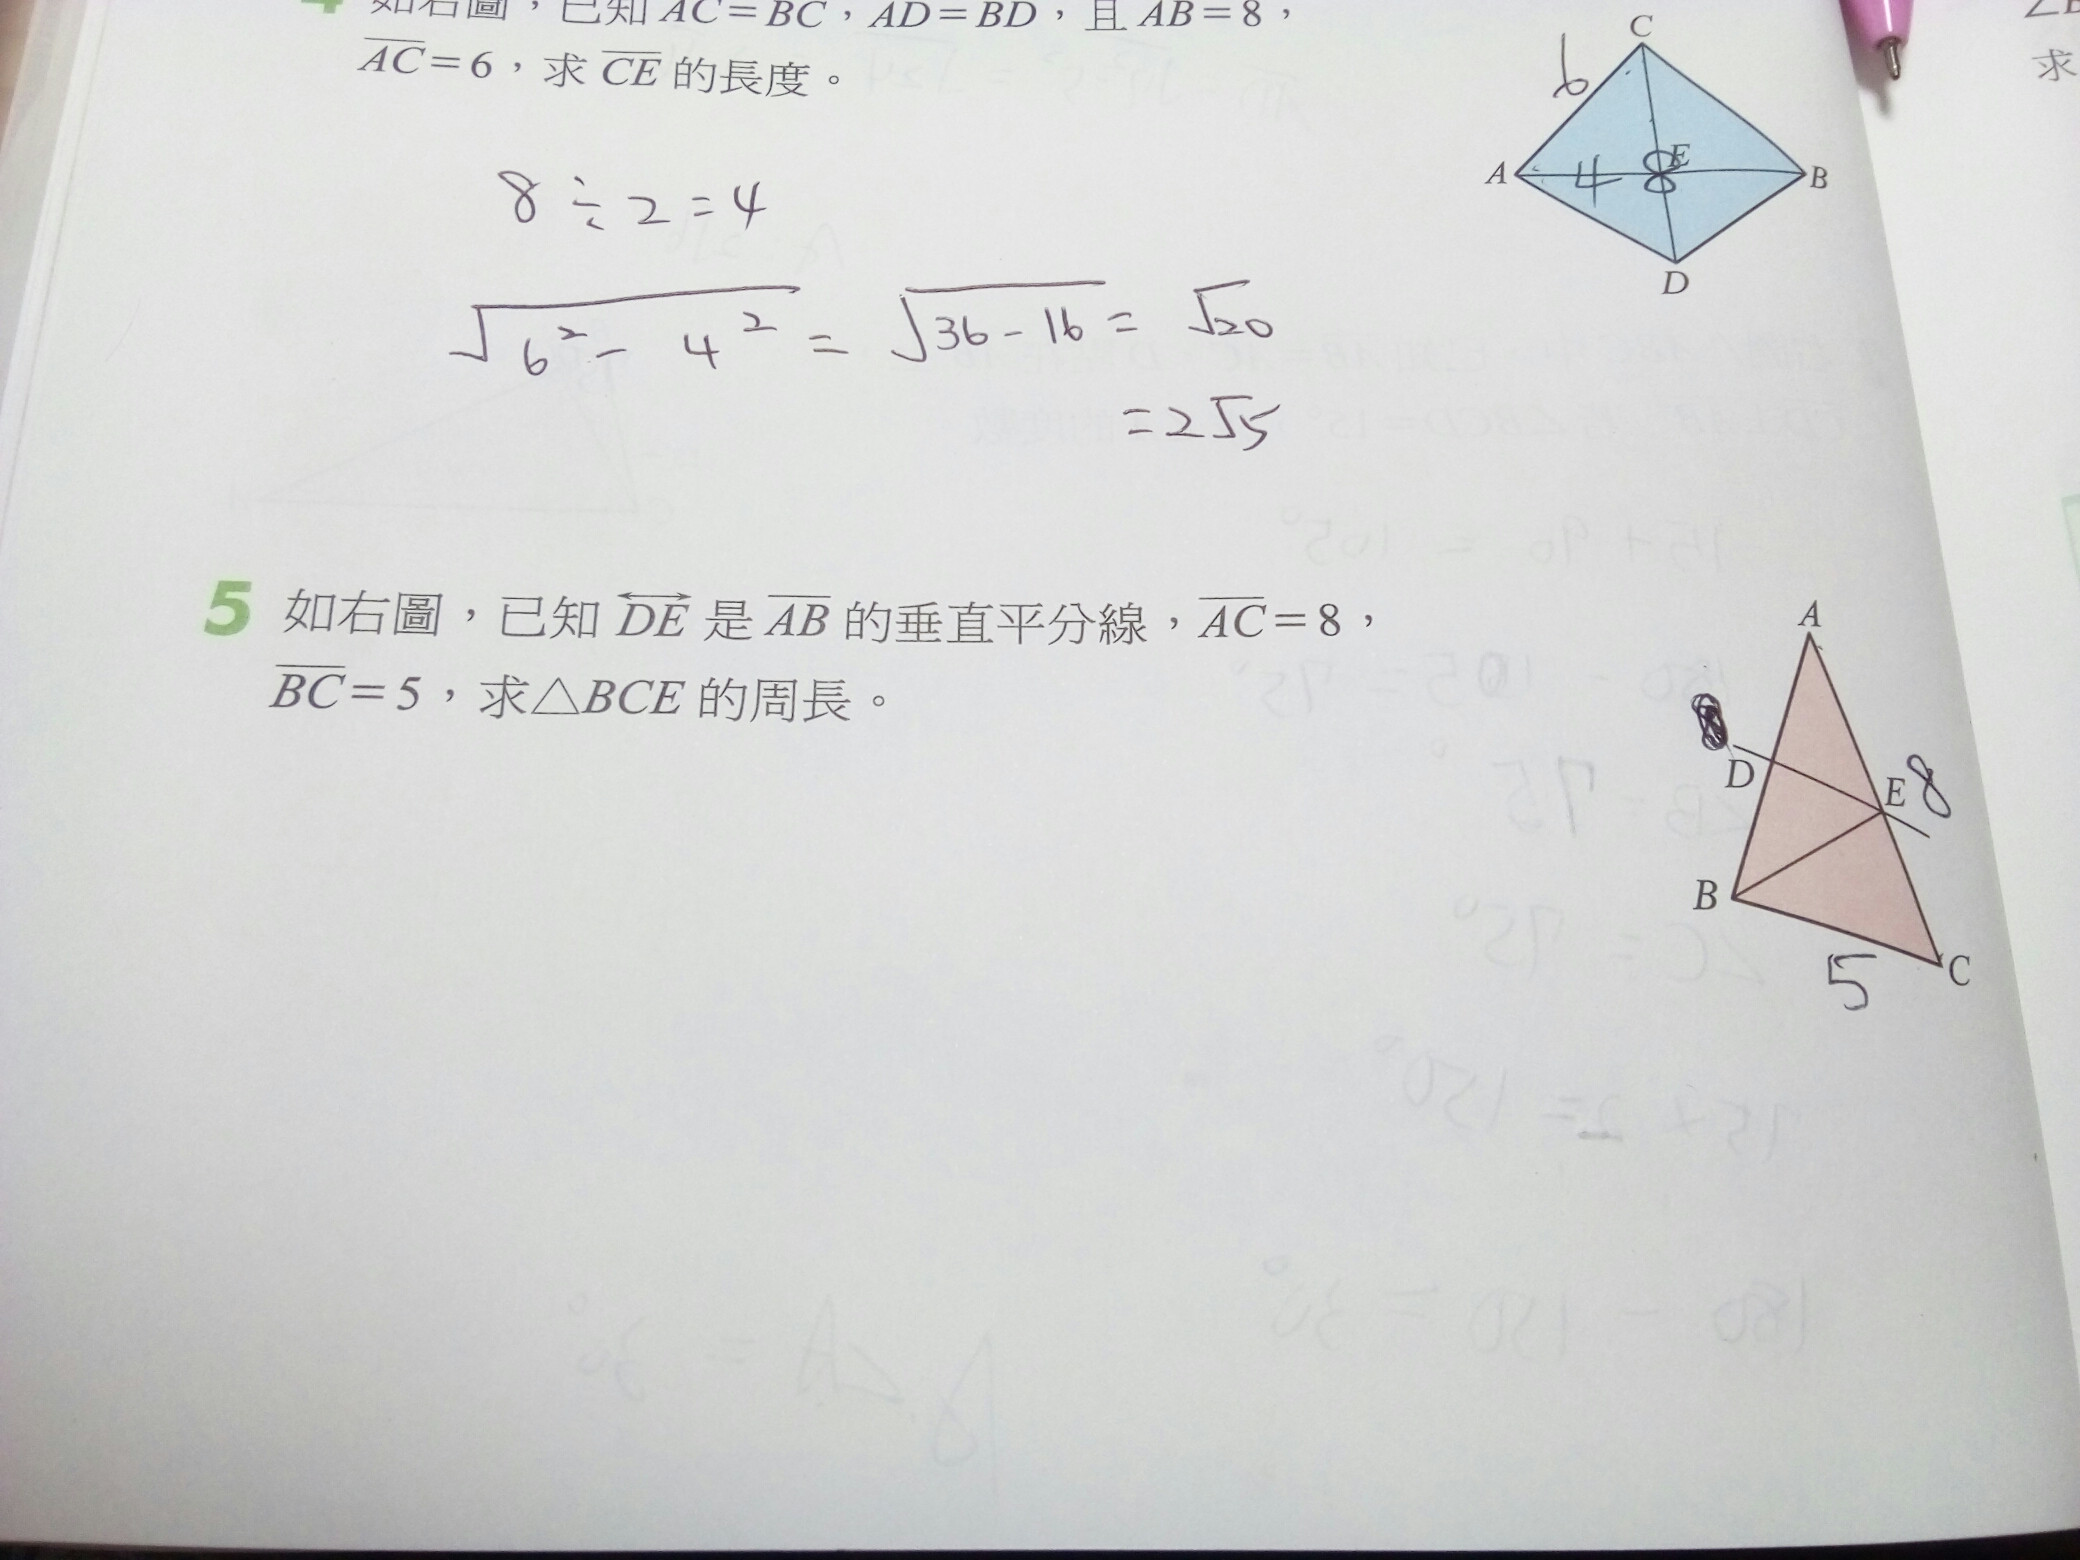 如右圖，已知 AC=BC，AD=BD，且 AB=8，
AC=6，求 CE 的長度。
C
6
A
4
8
E
B
D
8÷2=4
√6²-4² = √36-16 = √20
=2√5
5 如右圖，已知 DE 是 AB 的垂直平分線，AC=8，
BC=5，求△BCE 的周長。
A
D
E 8
B
5
C
求